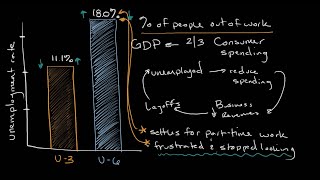 unemployment rate
11.1%
18.0%
U-3
U-6
% of people out of work
GDP ← 2/3 Consumer
spending
unemployed
reduce
spending
Layoffs
Business
Revenues
* settles for part-time work
* frustrated & stopped looking